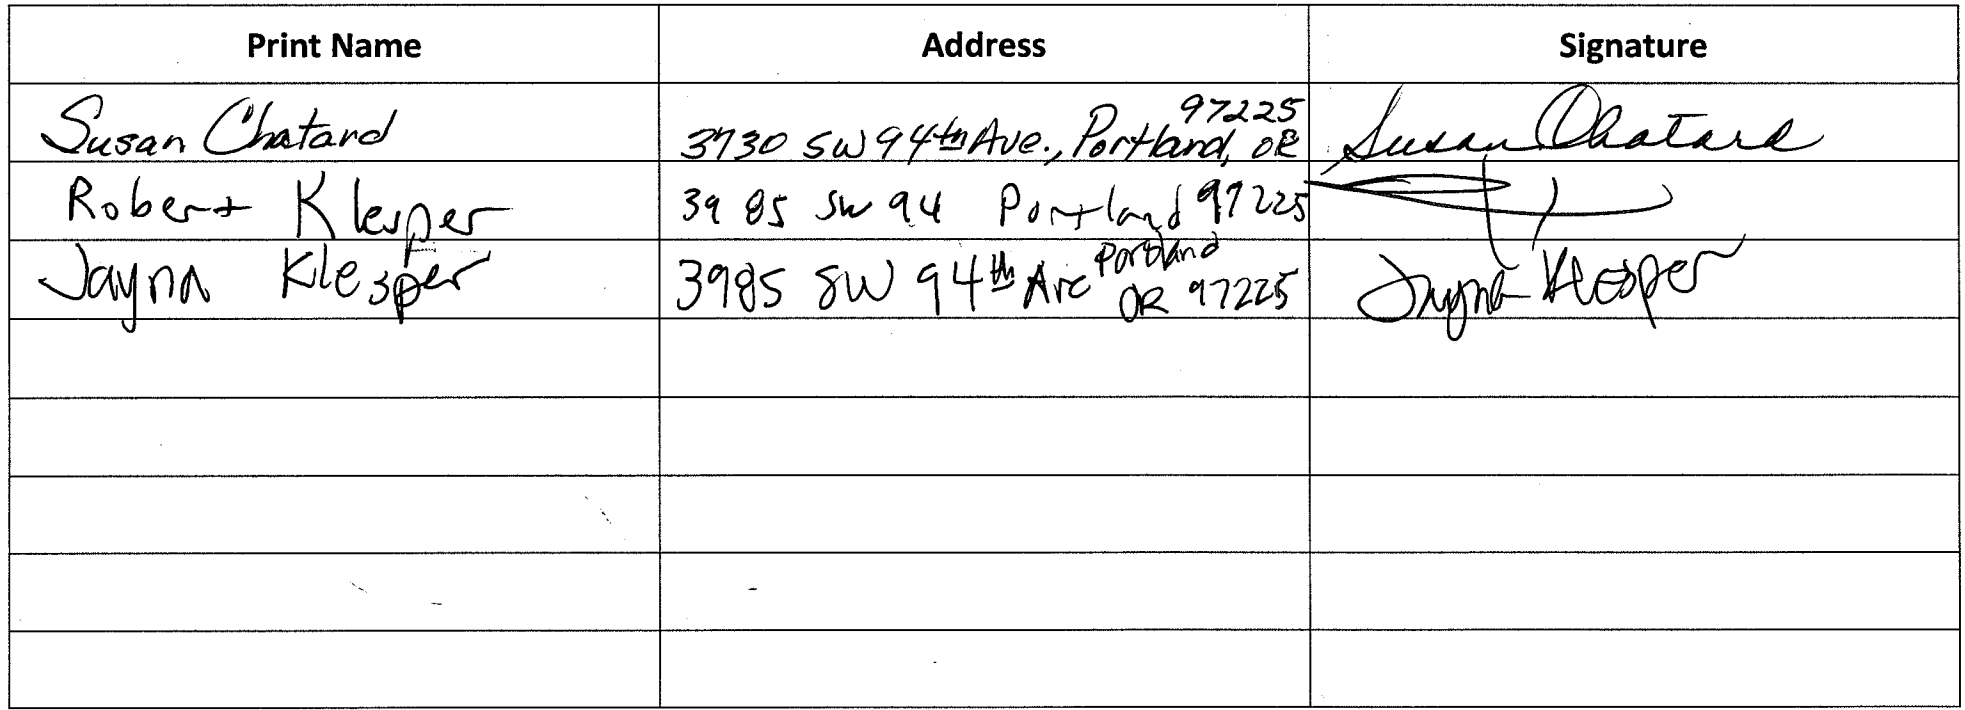 Print Name Address Signature
Susan Chatard 3730 SW 94th Ave., Portland, OR 97225 Susan Chatard
Robert Klesper 3985 SW 94 Portland 97225
Jayna Klesper 3985 SW 94th Ave Portland OR 97225 Jayna Klesper